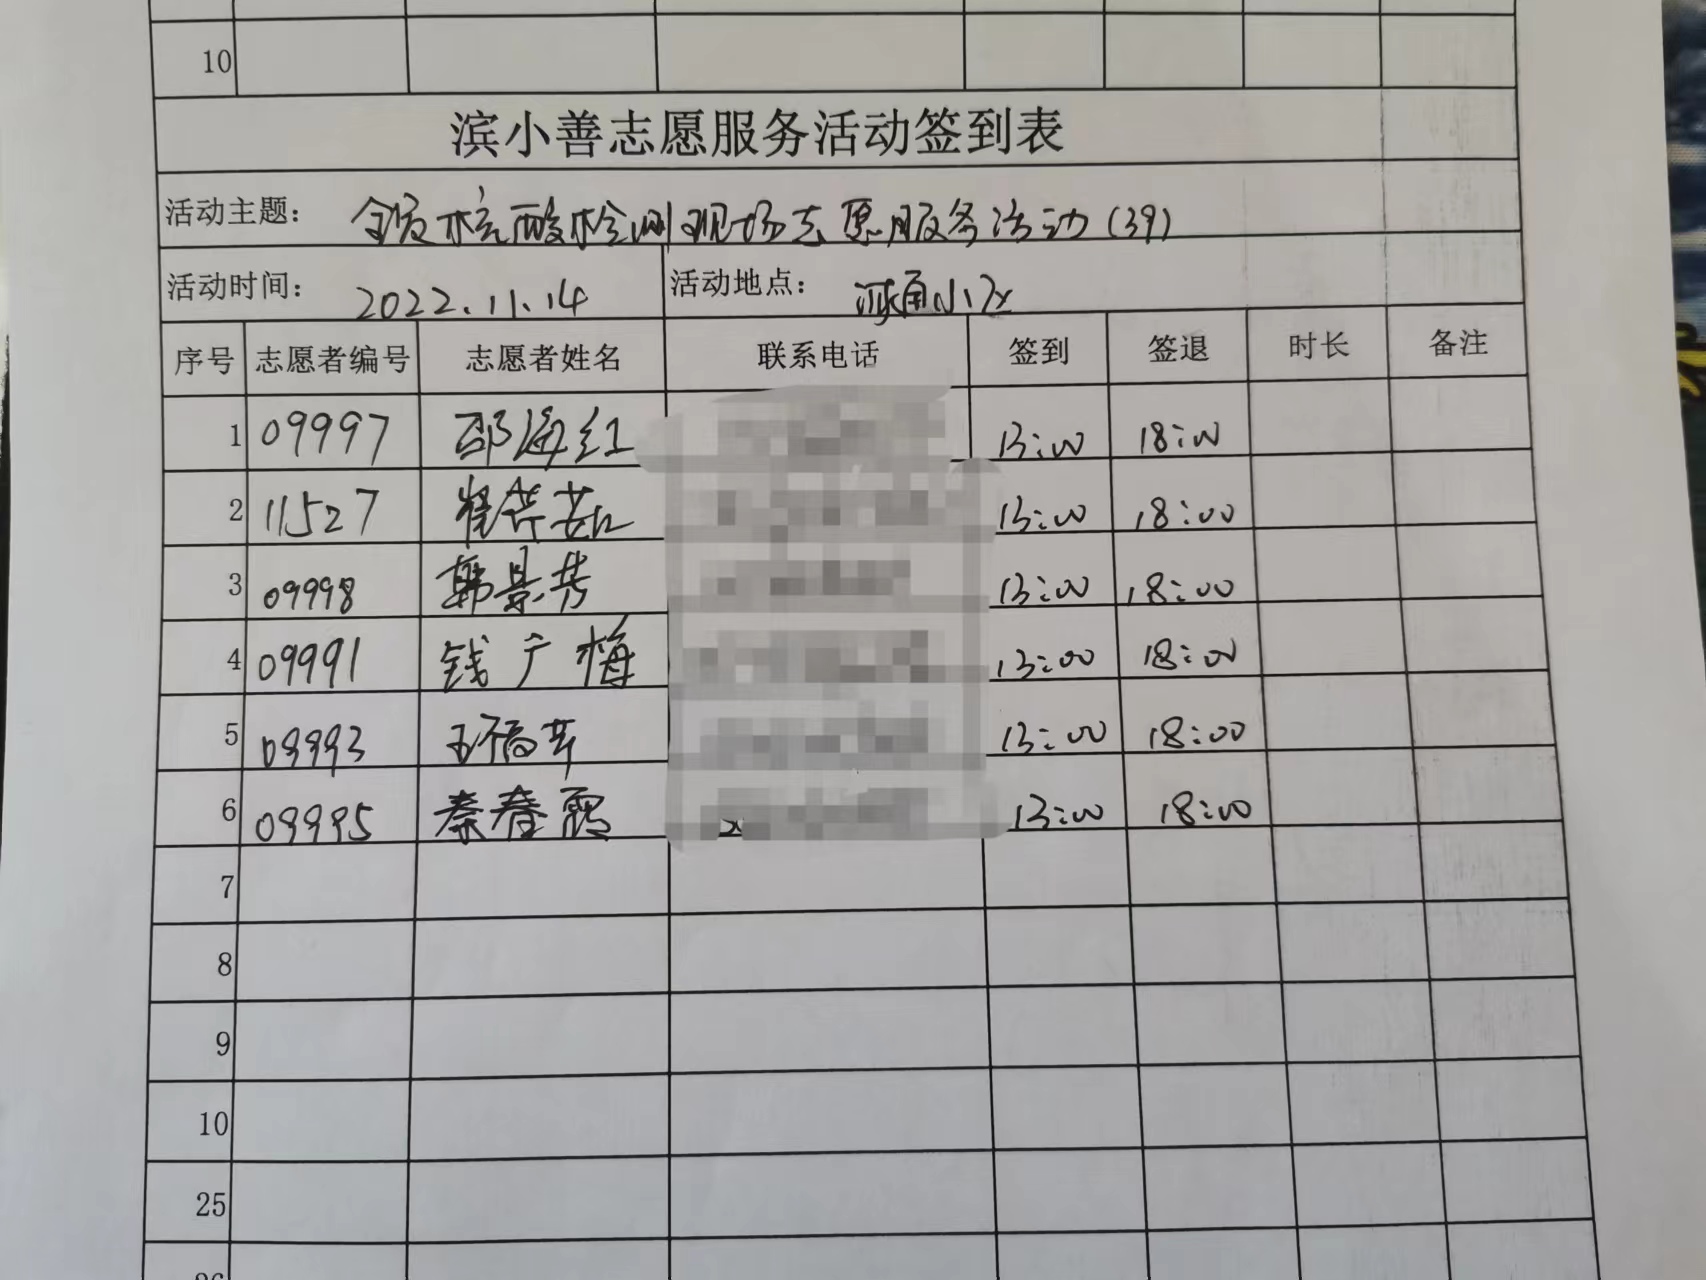 10
滨小善志愿服务活动签到表
活动主题： 全员核酸检测现场志愿服务活动(39)
活动时间： 2022.11.14 活动地点： 小区
序号 志愿者编号 志愿者姓名 联系电话 签到 签退 时长 备注
1 09997 邵海红 13:00 18:00
2 11527 13:00 18:00
3 09998 韩景芳 13:00 18:00
4 09991 钱广梅 13:00 18:00
5 09993 王福芹 13:00 18:00
6 09995 秦春霞 13:00 18:00
7
8
9
10
25
26